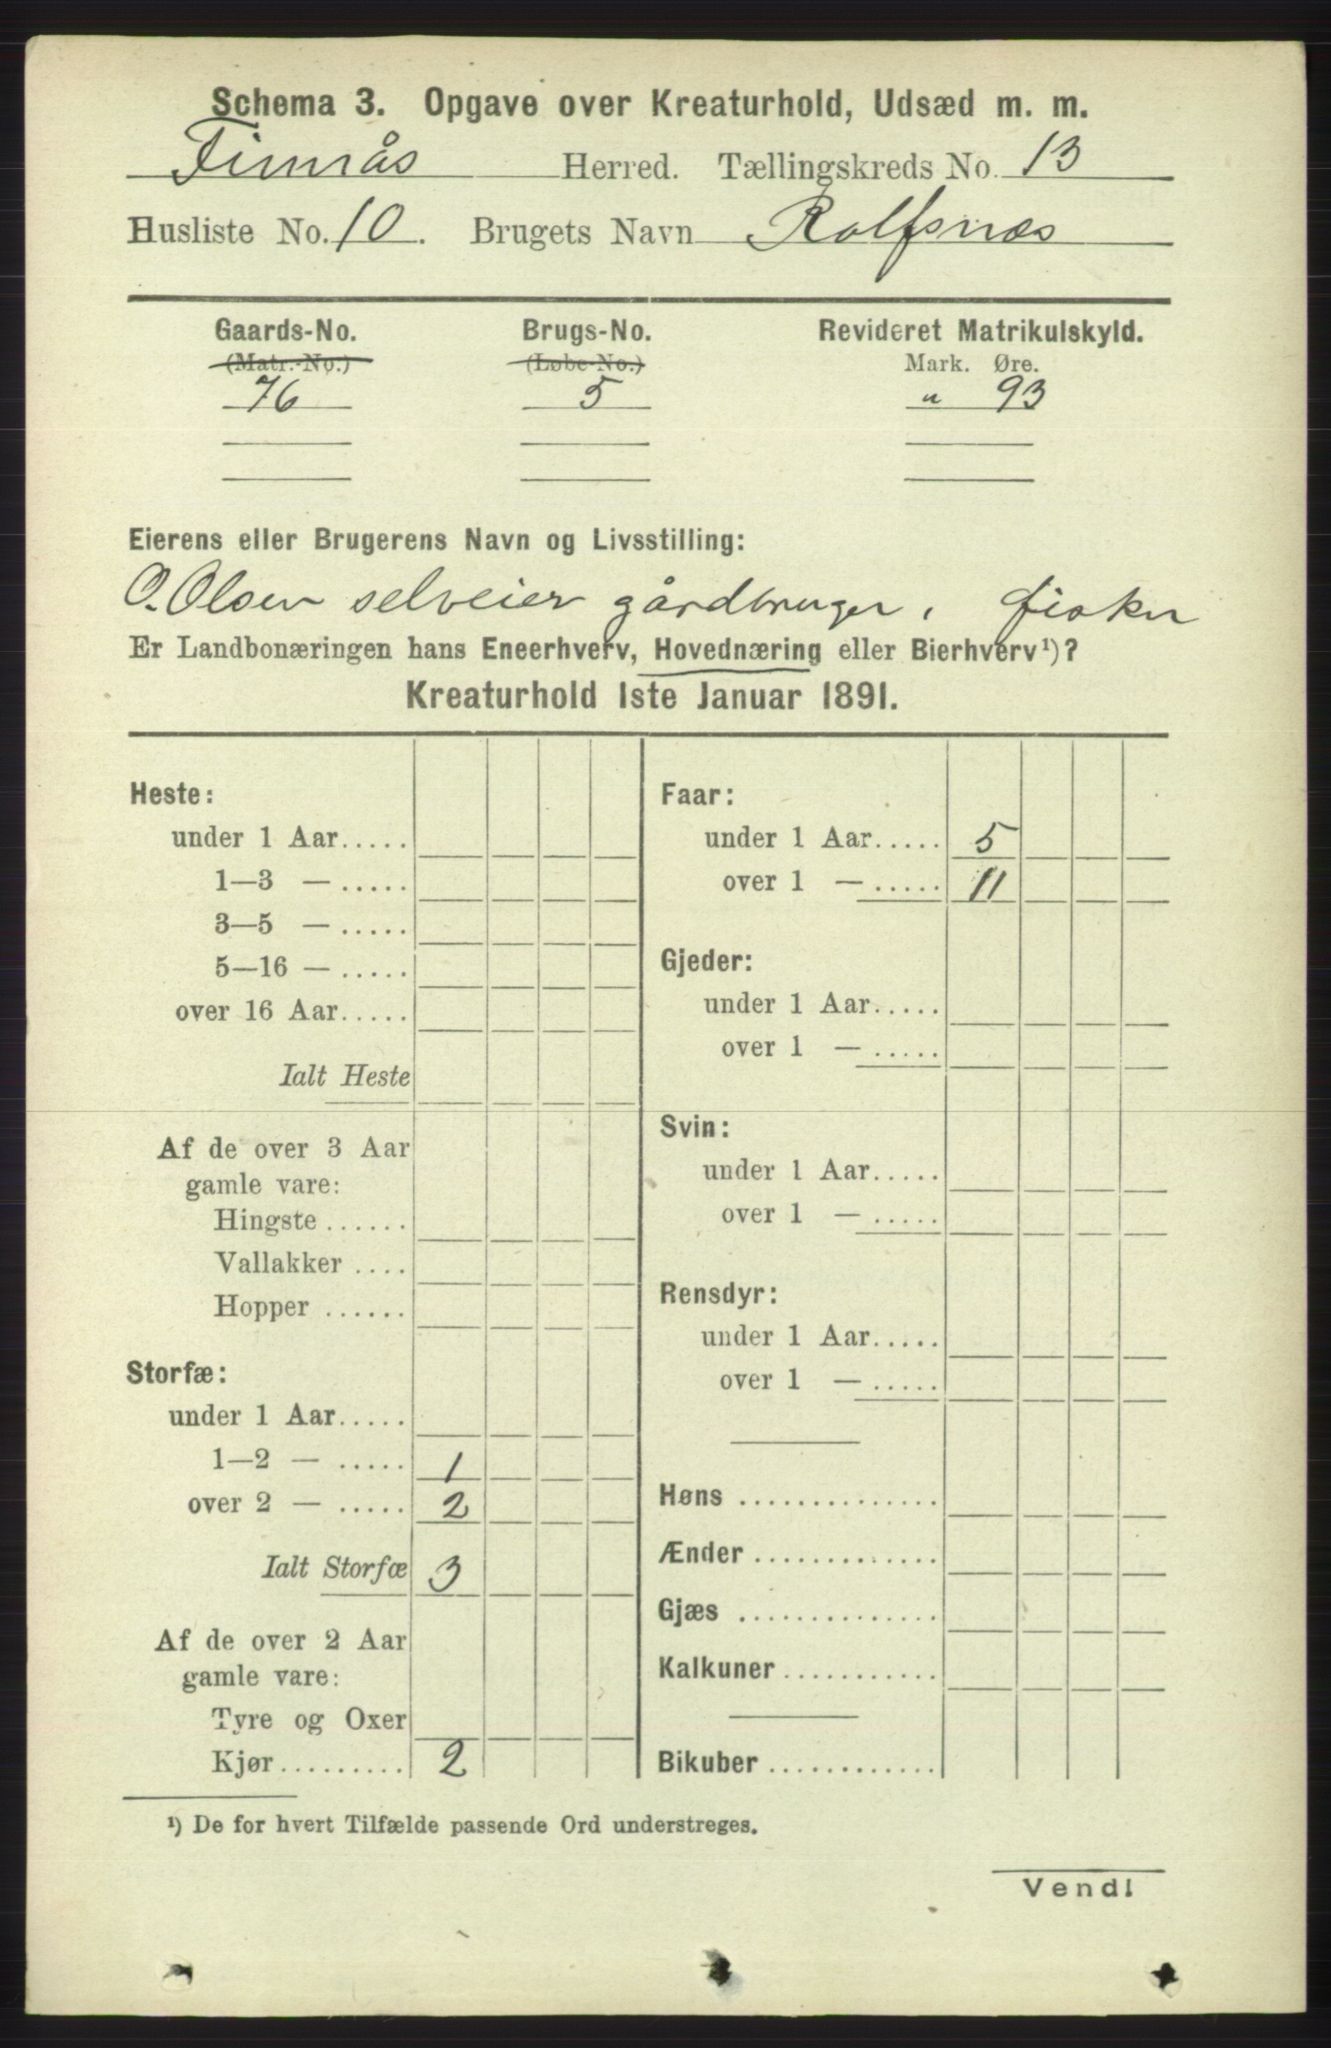 Schema 3. Opgave over Kreaturhold, Udsæd m. m.
Finnås Herred. Tællingskreds No. 13
Husliste No. 10. Brugets Navn Rolfsnæs
Gaards-No. Brugs-No. Revideret Matrikulskyld.
(Matr.-No.) (Løbe-No.) Mark. Øre.
76 5 " 93
Eierens eller Brugerens Navn og Livsstilling:
O. Olsen selveier gårdbruger, fisker
Er Landbonæringen hans Eneerhverv, Hovednæring eller Bierhverv¹)?
Kreaturhold 1ste Januar 1891.
Heste:
under 1 Aar.....
1—3 — .....
3—5 — .....
5—16 — .....
over 16 Aar.....
Ialt Heste
Af de over 3 Aar
gamle vare:
Hingste ......
Vallakker ....
Hopper ......
Storfæ:
under 1 Aar.....
1—2 — ..... 1
over 2 — ..... 2
Ialt Storfæ 3
Af de over 2 Aar
gamle vare:
Tyre og Oxer
Kjør......... 2
Faar:
under 1 Aar..... 5
over 1 — ..... 11
Gjeder:
under 1 Aar.....
over 1 — .....
Svin:
under 1 Aar.....
over 1 — .....
Rensdyr:
under 1 Aar.....
over 1 — .....
Høns ..............
Ænder .............
Gjæs ..............
Kalkuner ...........
Bikuber ............
¹) De for hvert Tilfælde passende Ord understreges.
Vend!